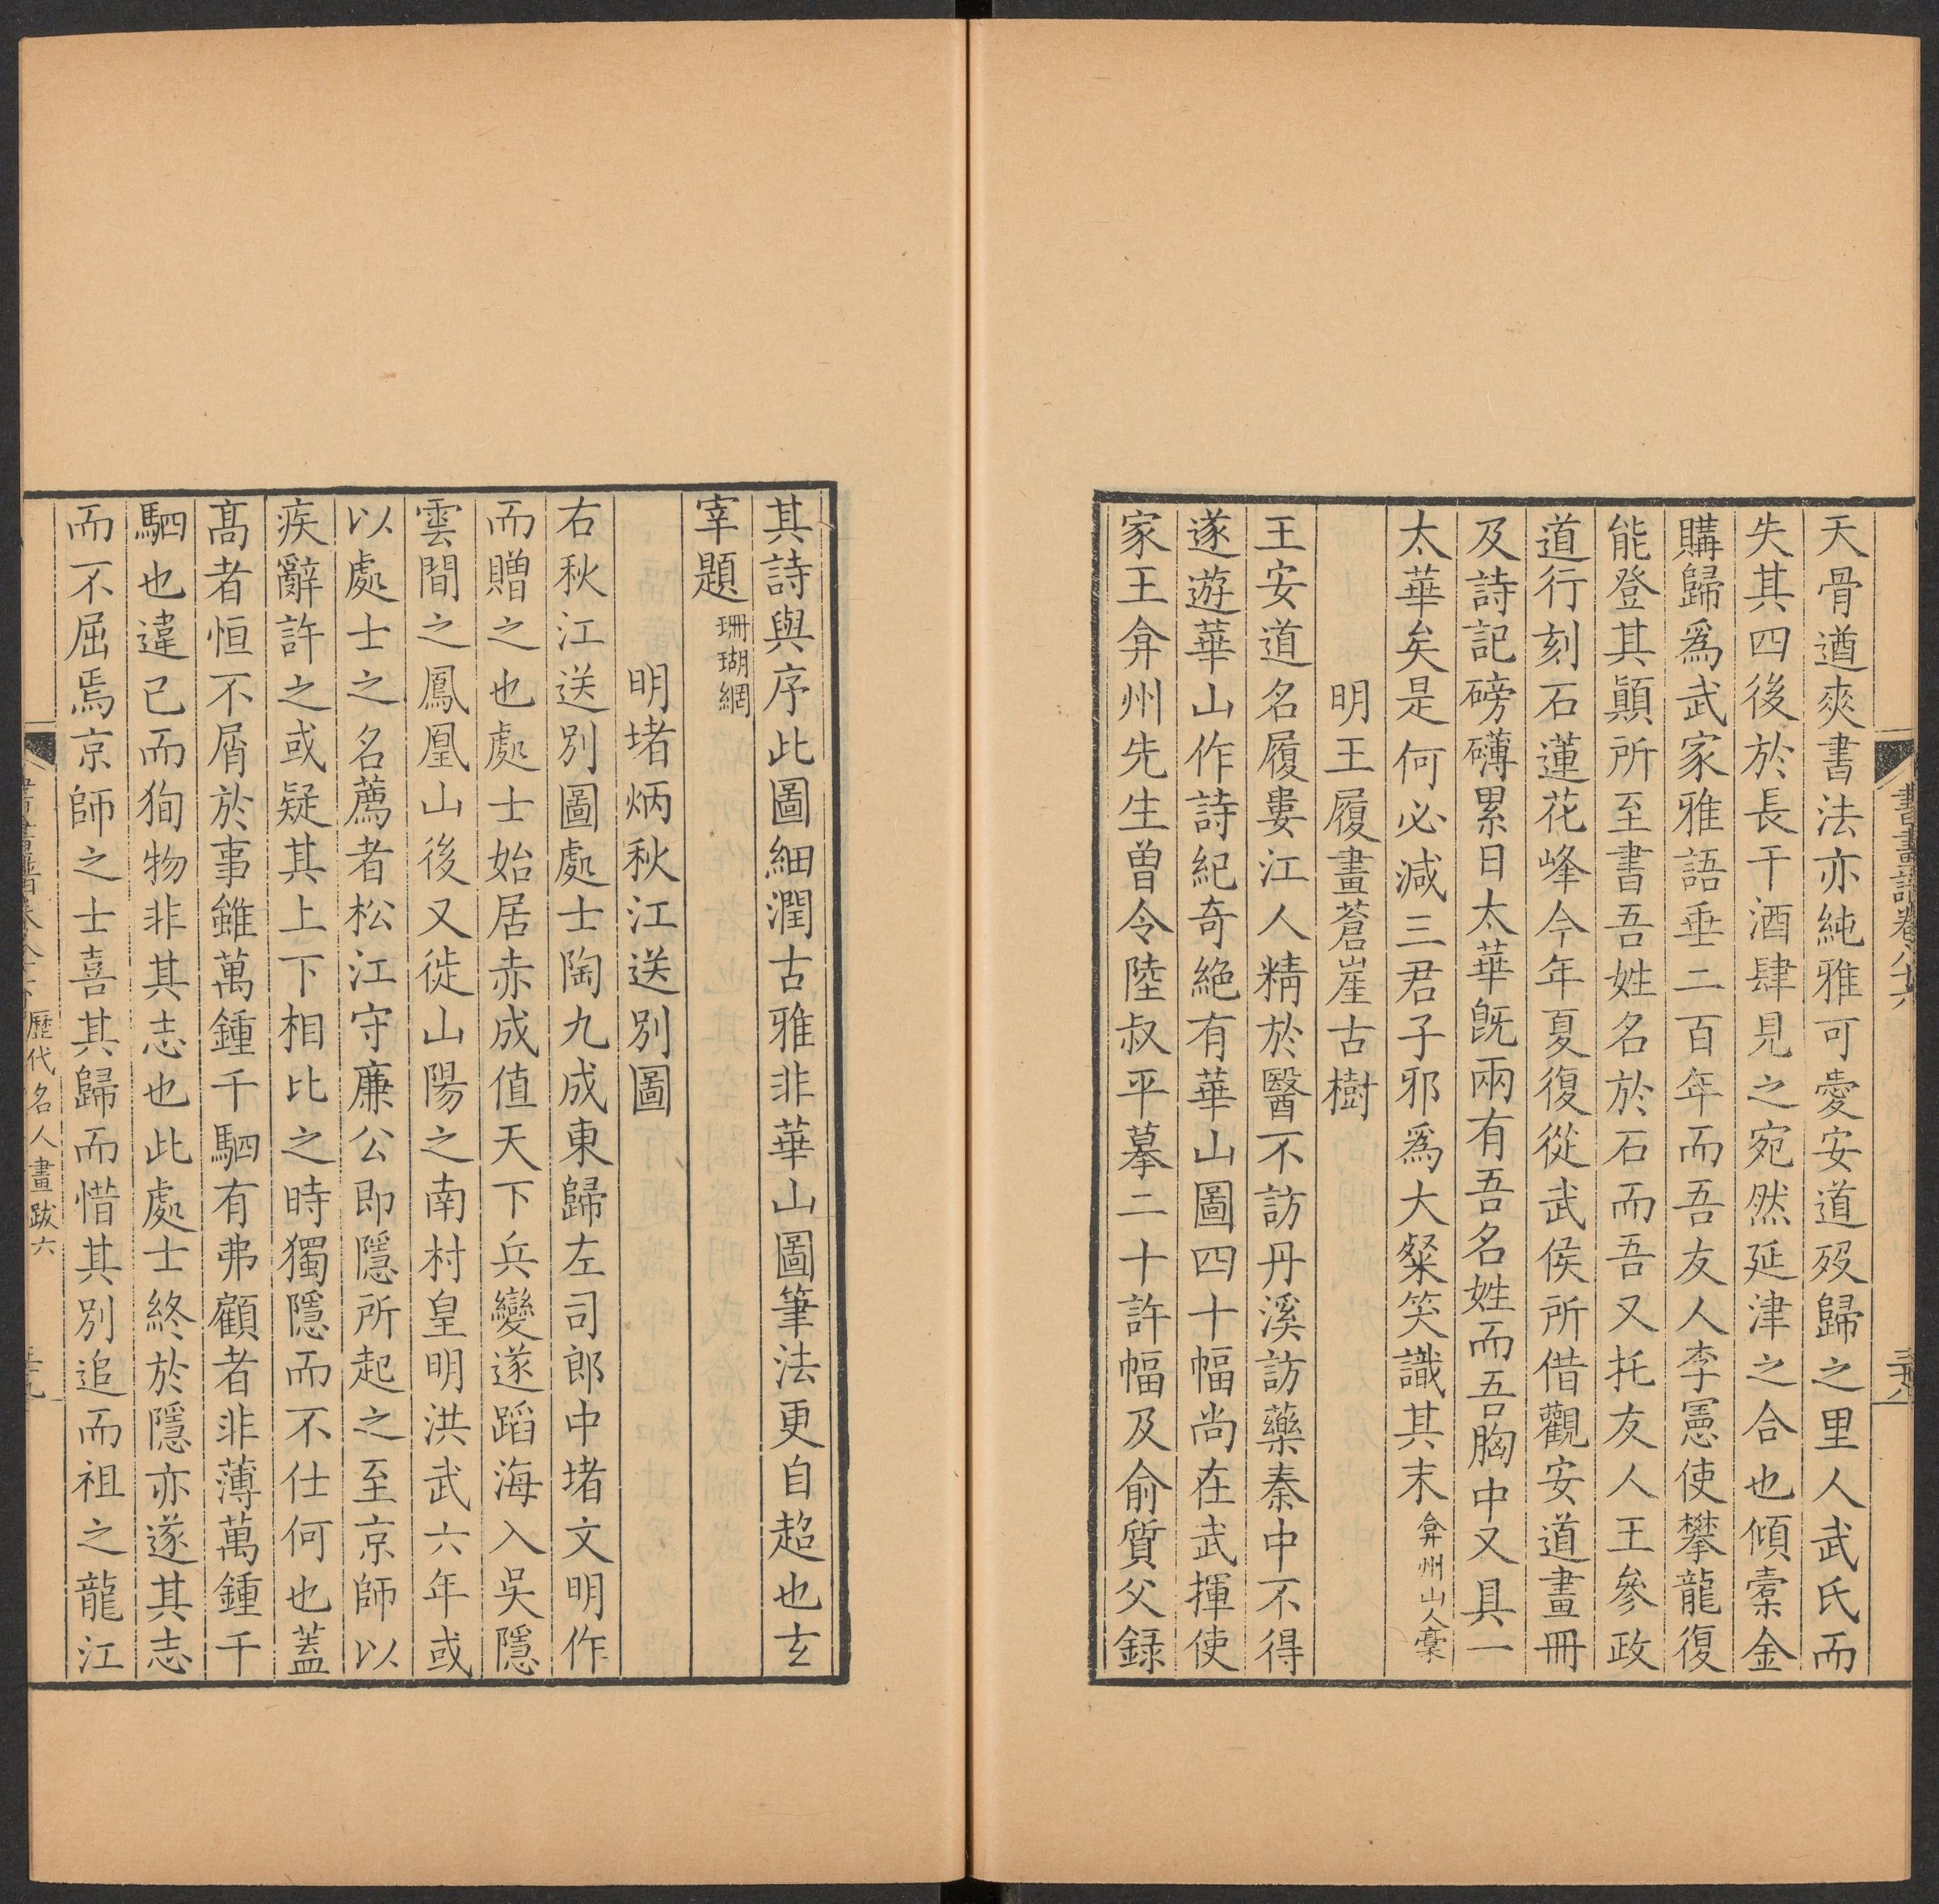 天骨遒爽書法亦純雅可愛安道歿歸之里人武氏而
失其四後於長干酒肆見之宛然延津之合也傾橐金
購歸爲武家雅語垂二百年而吾友人李憲使攀龍復
能登其顚所至書吾姓名於石而吾又托友人王參政
道行刻石蓮花峰今年夏復從武侯所借觀安道畫冊
及詩記磅礴累日太華旣兩有吾名姓而吾胸中又具一
太華矣是何必減三君子邪爲大粲笑識其末 弇州山人稾
明王履畫蒼崖古樹
王安道名履婁江人精於醫不訪丹溪訪藥秦中不得
遂遊華山作詩紀奇絶有華山圖四十幅尚在武揮使
家王弇州先生曾令陸叔平摹二十許幅及俞質父録
其詩與序此圖細潤古雅非華山圖筆法更自超也玄
宰題 珊瑚網
明堵炳秋江送別圖
右秋江送別圖處士陶九成東歸左司郎中堵文明作
而贈之也處士始居赤成値天下兵變遂蹈海入吳隱
雲間之鳳凰山後又徙山陽之南村皇明洪武六年或
以處士之名薦者松江守亷公即隱所起之至京師以
疾辭許之或疑其上下相比之時獨隱而不仕何也蓋
髙者恒不屑於事雖萬鍾千駟有弗顧者非薄萬鍾千
駟也違己而狥物非其志也此處士終於隱亦遂其志
而不屈焉京師之士喜其歸而惜其別追而祖之龍江
歷代名人畫跋六